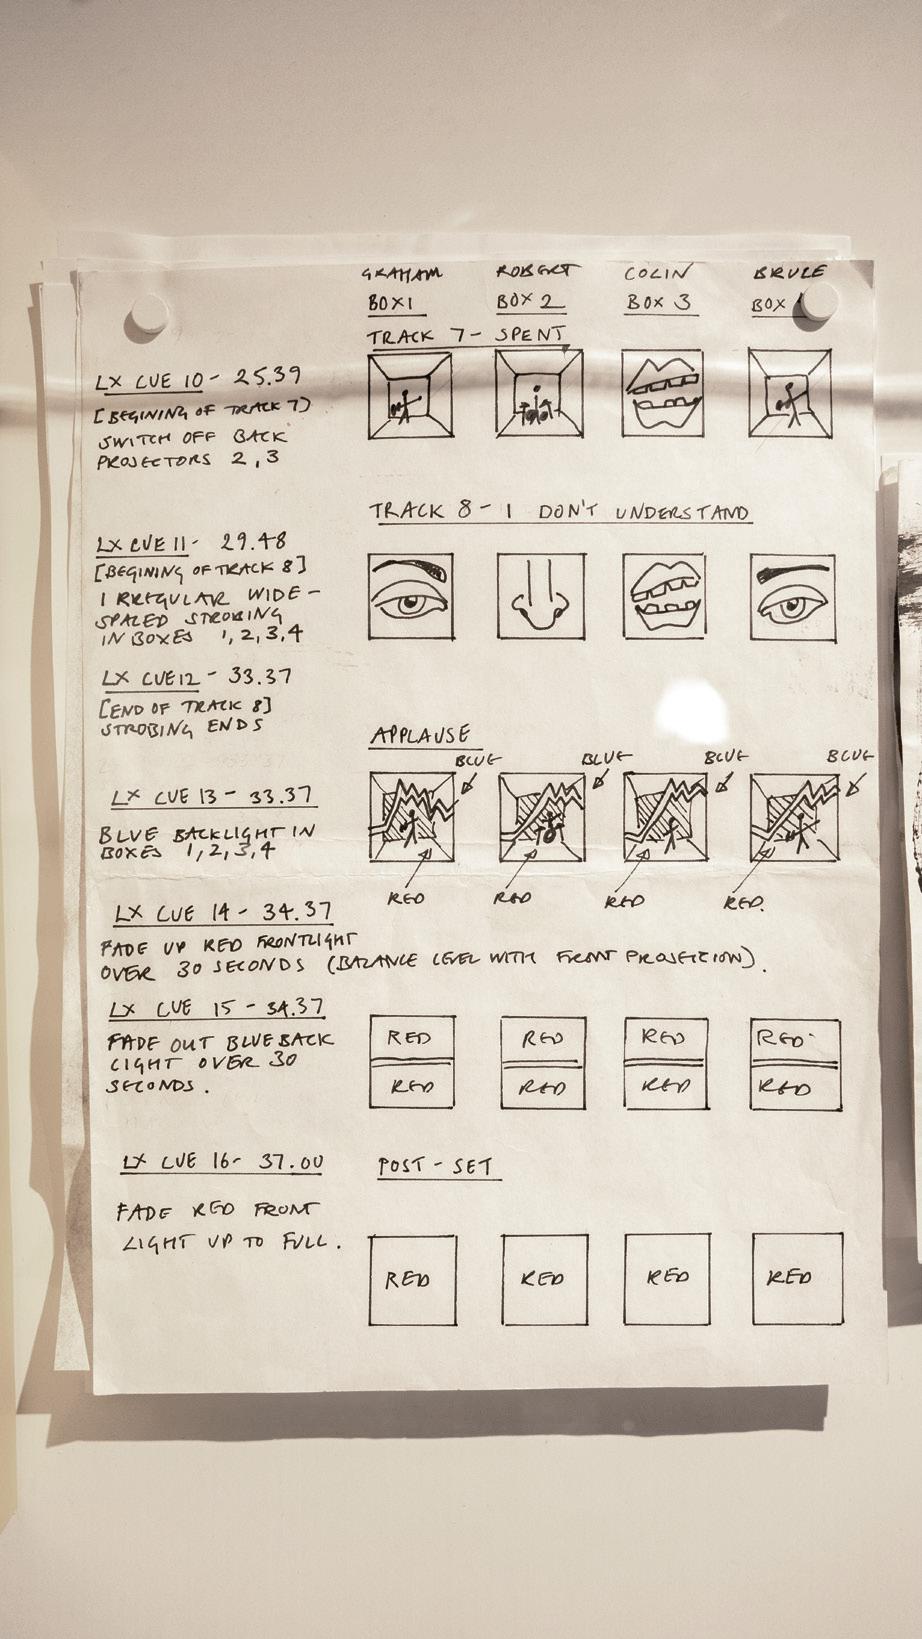 GRAHAM ROBERT COLIN BRUCE
BOX 1 BOX 2 BOX 3 BOX
TRACK 7 - SPENT
LX CUE 10 - 25.39
[BEGINING OF TRACK 7]
SWITCH OFF BACK
PROJECTORS 2, 3
TRACK 8 - I DON'T UNDERSTAND
LX CUE 11 - 29.48
[BEGINING OF TRACK 8]
IRREGULAR WIDE -
SPACED STROBING
IN BOXES 1, 2, 3, 4
LX CUE 12 - 33.37
[END OF TRACK 8]
STROBING ENDS
APPLAUSE
BLUE BLUE BLUE BLUE
LX CUE 13 - 33.37
BLUE BACKLIGHT IN
BOXES 1, 2, 3, 4
RED RED RED RED.
LX CUE 14 - 34.37
FADE UP RED FRONTLIGHT
OVER 30 SECONDS (BALANCE LEVEL WITH FRONT PROJECTION).
LX CUE 15 - 34.37
FADE OUT BLUE BACK
LIGHT OVER 30
SECONDS.
RED RED RED RED
RED RED RED RED
LX CUE 16 - 37.00
POST - SET
FADE RED FRONT
LIGHT UP TO FULL.
RED RED RED RED